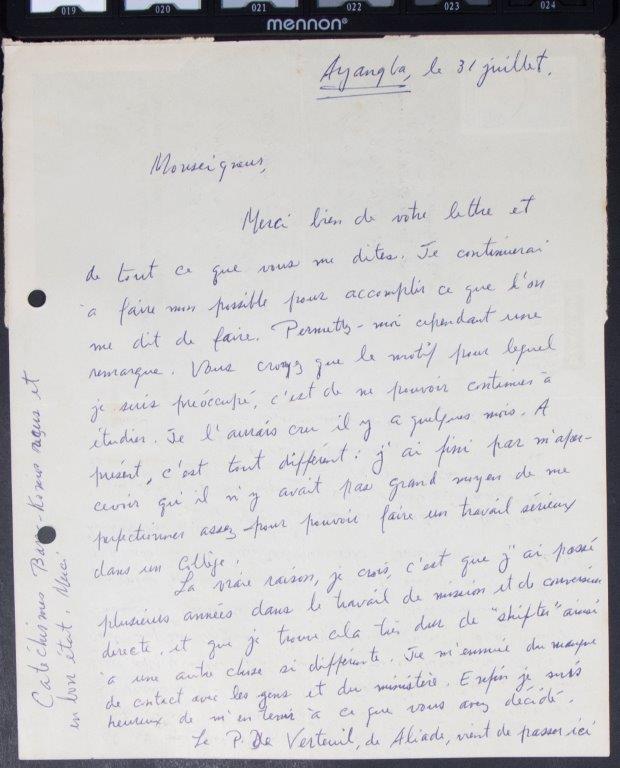 019 020 021 022 023 024
mennon®
Ayangba, le 31 juillet.
Monseigneur,
Merci bien de votre lettre et
de tout ce que vous me dites. Je continuerai
à faire mon possible pour accomplir ce que l'on
me dit de faire. Permettez-moi cependant une
remarque. Vous croyez que le motif pour lequel
je suis préoccupé, c'est de ne pouvoir continuer à
étudier. Je l'aurais cru il y a quelques mois. A
présent, c'est tout différent : j'ai fini par m'aper-
cevoir qu'il n'y avait pas grand moyen de me
perfectionner assez pour pouvoir faire un travail sérieux
dans un Collège.
La vraie raison, je crois, c'est que j'ai passé
plusieurs années dans le travail de mission et de conversion
directe, et que je trouve cela très dur de "shifter" ainsi
à une autre chose si différente. Je m'ennuie du manque
de contact avec les gens et du ministère. Enfin je suis
heureux de m'en tenir à ce que vous avez décidé.
Le P. De Verteuil, de Aliade, vient de passer ici
Catéchismes Bassa-Komu reçus et
en bon état. Merci